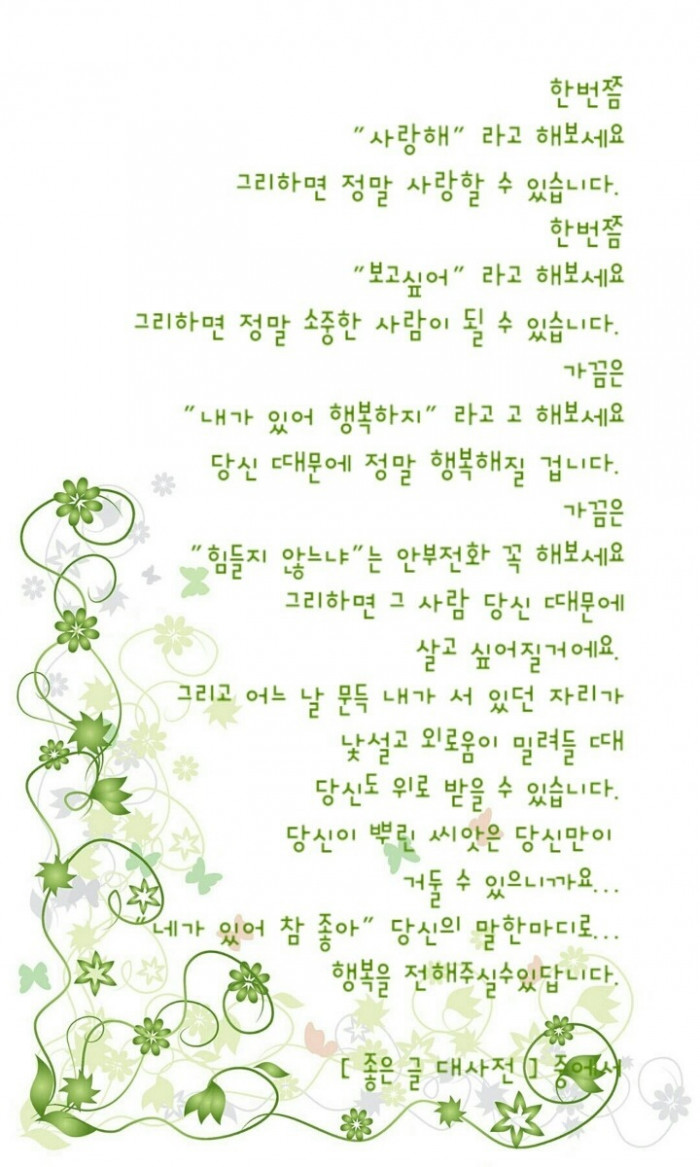 한번쯤
"사랑해" 라고 해보세요
그리하면 정말 사랑할 수 있습니다.
한번쯤
"보고싶어" 라고 해보세요
그리하면 정말 소중한 사람이 될 수 있습니다.
가끔은
"내가 있어 행복하지" 라고 고 해보세요
당신 때문에 정말 행복해질 겁니다.
가끔은
"힘들지 않느냐"는 안부전화 꼭 해보세요
그리하면 그 사람 당신 때문에
살고 싶어질거에요.
그리고 어느 날 문득 내가 서 있던 자리가
낯설고 외로움이 밀려들 때
당신도 위로 받을 수 있습니다.
당신이 뿌린 씨앗은 당신만이
거둘 수 있으니까요...
"네가 있어 참 좋아" 당신의 말한마디로...
행복을 전해주실수있답니다.
[ 좋은 글 대사전 ] 중에서